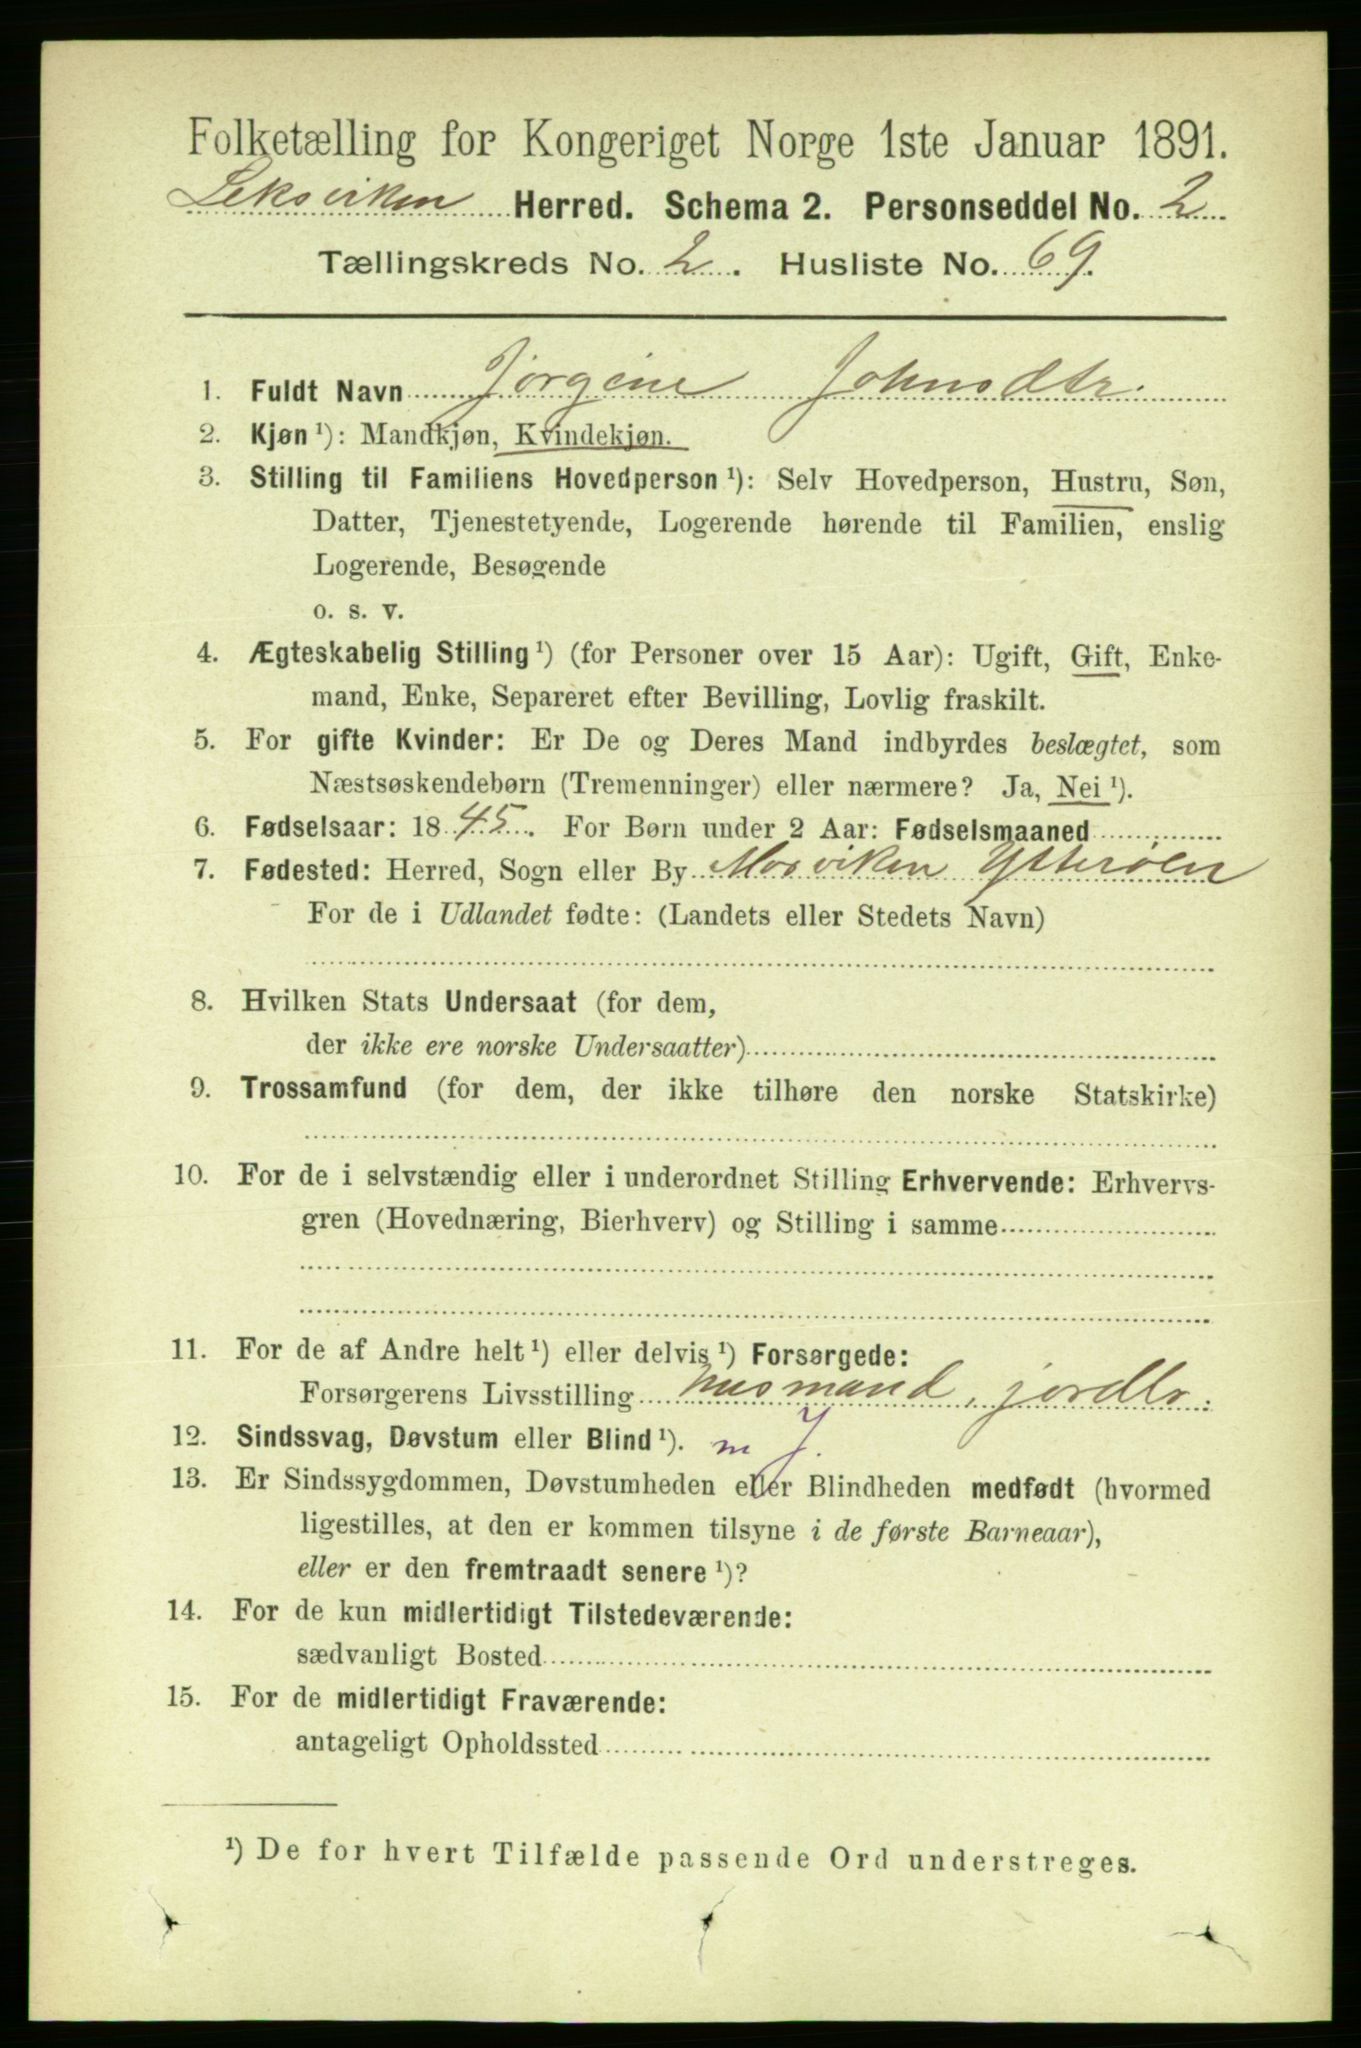 Folketælling for Kongeriget Norge 1ste Januar 1891.
Leksviken Herred. Schema 2. Personseddel No. 2
Tællingskreds No. 2. Husliste No. 69.
1. Fuldt Navn Jørgine Johnsdtr.
2. Kjøn ¹): Mandkjøn, Kvindekjøn.
3. Stilling til Familiens Hovedperson ¹): Selv Hovedperson, Hustru, Søn,
Datter, Tjenestetyende, Logerende hørende til Familien, enslig
Logerende, Besøgende
o. s. v.
4. Ægteskabelig Stilling ¹) (for Personer over 15 Aar): Ugift, Gift, Enke-
mand, Enke, Separeret efter Bevilling, Lovlig fraskilt.
5. For gifte Kvinder: Er De og Deres Mand indbyrdes beslægtet, som
Næstsøskendebørn (Tremenninger) eller nærmere? Ja, Nei ¹).
6. Fødselsaar: 1845. For Børn under 2 Aar: Fødselsmaaned
7. Fødested: Herred, Sogn eller By Mosviken Ytterøen
For de i Udlandet fødte: (Landets eller Stedets Navn)
8. Hvilken Stats Undersaat (for dem,
der ikke ere norske Undersaatter)
9. Trossamfund (for dem, der ikke tilhøre den norske Statskirke)
10. For de i selvstændig eller i underordnet Stilling Erhvervende: Erhvervs-
gren (Hovednæring, Bierhverv) og Stilling i samme
11. For de af Andre helt ¹) eller delvis ¹) Forsørgede:
Forsørgerens Livsstilling husmand, jordbr.
12. Sindssvag, Døvstum eller Blind ¹). m J.
13. Er Sindssygdommen, Døvstumheden eller Blindheden medfødt (hvormed
ligestilles, at den er kommen tilsyne i de første Barneaar),
eller er den fremtraadt senere ¹)?
14. For de kun midlertidigt Tilstedeværende:
sædvanligt Bosted
15. For de midlertidigt Fraværende:
antageligt Opholdssted
¹) De for hvert Tilfælde passende Ord understreges.